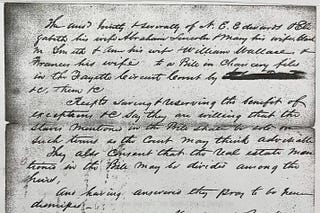 The ansr jointly & severally of N. E. Edwards & Eliz
abeth his wife Abraham Lincoln & Mary his wife
M. Smith & Ann his wife & William Wallace &
Frances his wife to a Bill in Chancery filed
in the Fayette Circuit Court by
&c. Them &c
Resp'ts saving & reserving the benefit of
exceptions &c say they are willing that the
slaves mentioned in the Bill shall be sold on
such terms as the Court may think advisable
They also consent that the real estate men
tioned in the Bill may be divided among the
heirs.
And having answered they pray to be hence
dismissed